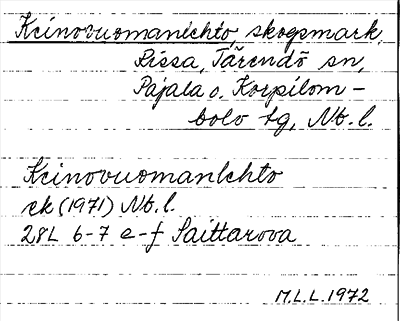 Keinovuomanlehto, skogsmark,
Rissa, Tärendö sn,
Pajala o. Korpilom-
bolo tg, Nb. l.
Keinovuomanlehto
ek (1971) Nb. l.
28L 6-7 e-f Saittarova
M.L.L. 1972